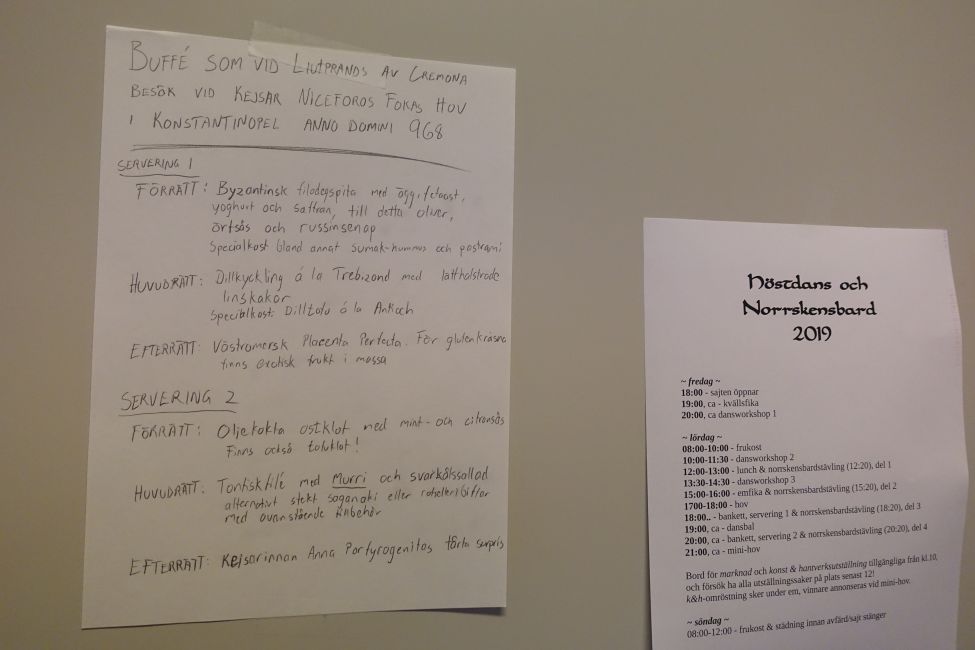 BUFFÉ SOM VID LIUTPRANDS AV CREMONA
BESÖK VID KEJSAR NICEFOROS FOKAS HOV
I KONSTANTINOPEL ANNO DOMINI 968
SERVERING 1
FÖRRÄTT: Byzantinsk filodegspita med ägg, fetaost,
yoghurt och saffran, till detta oliver,
örtsås och russinsenap
Specialkost bland annat sumak-hummus och pastrami
HUVUDRÄTT: Dillkyckling á la Trebizond med lättholstrade
linskakor
Specialkost: Dilltofu á la
EFTERRÄTT: Västromersk Placenta Perfecta. För glutenkräsna
finns exotisk frukt i massa
SERVERING 2
FÖRRÄTT: Oljekokta ostklot med mint- och citronsås
Finns också tofuklot!
HUVUDRÄTT: Tonfiskfilé med Murri och svartkålssallad
alternativt stekt saganaki eller rotselleribiffar
med ovanstående tillbehör
EFTERRÄTT: Kejsarinnan Anna Porfyrogenitas tårta surpris
Höstdans och
Norrskensbard
2019
~ fredag ~
18:00 - sajten öppnar
19:00, ca - kvällsfika
20:00, ca dansworkshop 1
~ lördag ~
08:00-10:00 - frukost
10:00-11:30 - dansworkshop 2
12:00-13:00 - lunch & norrskensbardstävling (12:20), del 1
13:30-14:30 - dansworkshop 3
15:00-16:00 - emfika & norrskensbardstävling (15:20), del 2
1700-18:00 - hov
18:00.. - bankett, servering 1 & norrskensbardstävling (18:20), del 3
19:00, ca - dansbal
20:00, ca - bankett, servering 2 & norrskensbardstävling (20:20), del 4
21:00, ca - mini-hov
Bord för marknad och konst & hantverksutställning tillgängliga från kl.10,
och försök ha alla utställningssaker på plats senast 12!
k&h-omröstning sker under em, vinnare annonseras vid mini-hov.
~ söndag ~
08:00-12:00 - frukost & städning innan avfärd/sajt stänger